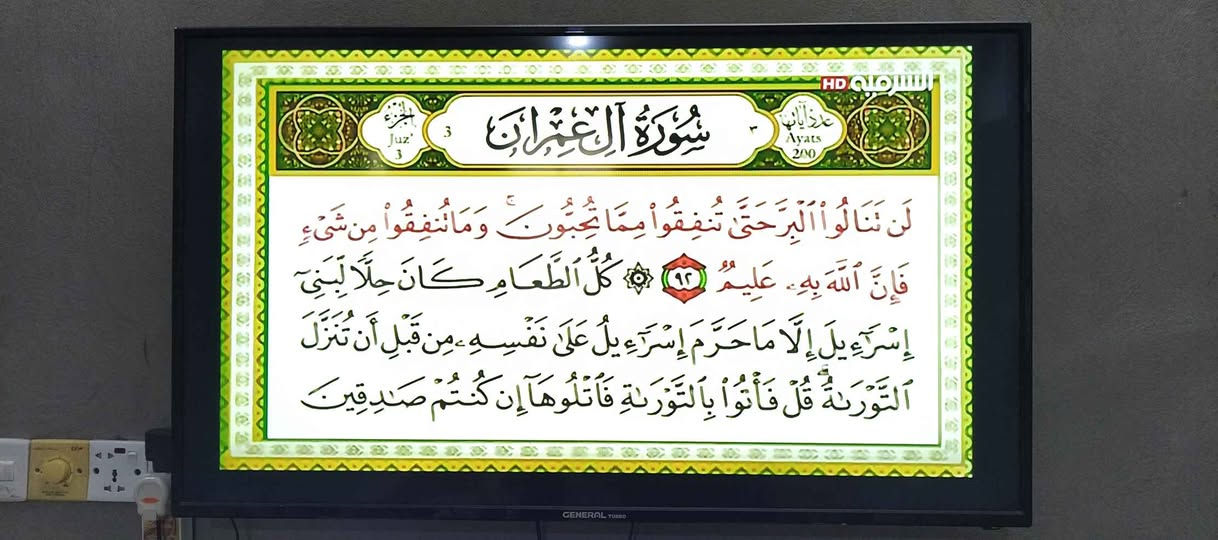 HD الشرقية
الجزء
Juz'
3
3
سُورَةُ آلِ عِمْرَانَ
٣
عدد آياتها
Ayats
200
لَن تَنَالُوا۟ ٱلْبِرَّ حَتَّىٰ تُنفِقُوا۟ مِمَّا تُحِبُّونَ ۚ وَمَا تُنفِقُوا۟ مِن شَىْءٍ
فَإِنَّ ٱللَّهَ بِهِۦ عَلِيمٌ ٩٢ ۞ كُلُّ ٱلطَّعَامِ كَانَ حِلًّا لِّبَنِىٓ
إِسْرَٰٓءِيلَ إِلَّا مَا حَرَّمَ إِسْرَٰٓءِيلُ عَلَىٰ نَفْسِهِۦ مِن قَبْلِ أَن تُنَزَّلَ
ٱلتَّوْرَىٰةُ ۗ قُلْ فَأْتُوا۟ بِٱلتَّوْرَىٰةِ فَٱتْلُوهَآ إِن كُنتُمْ صَـٰدِقِينَ
GENERAL TURBO